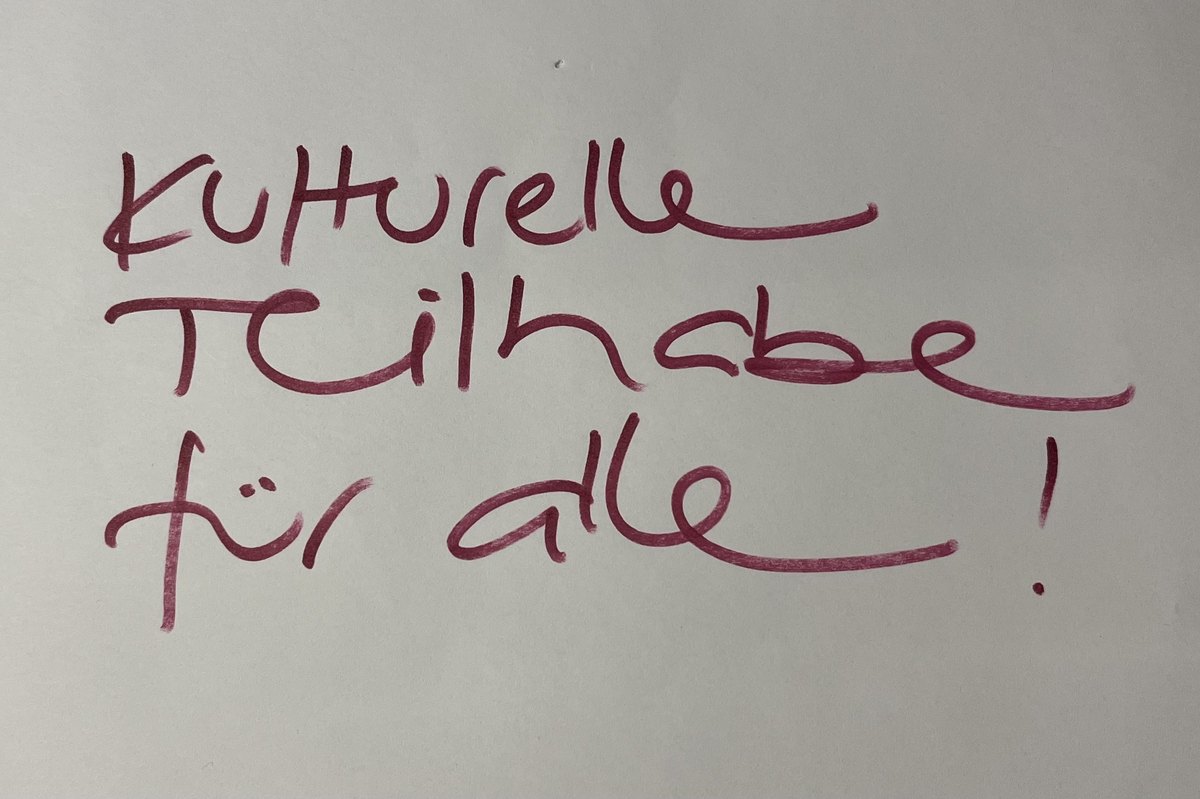 Kulturelle
Teilhabe
für alle !